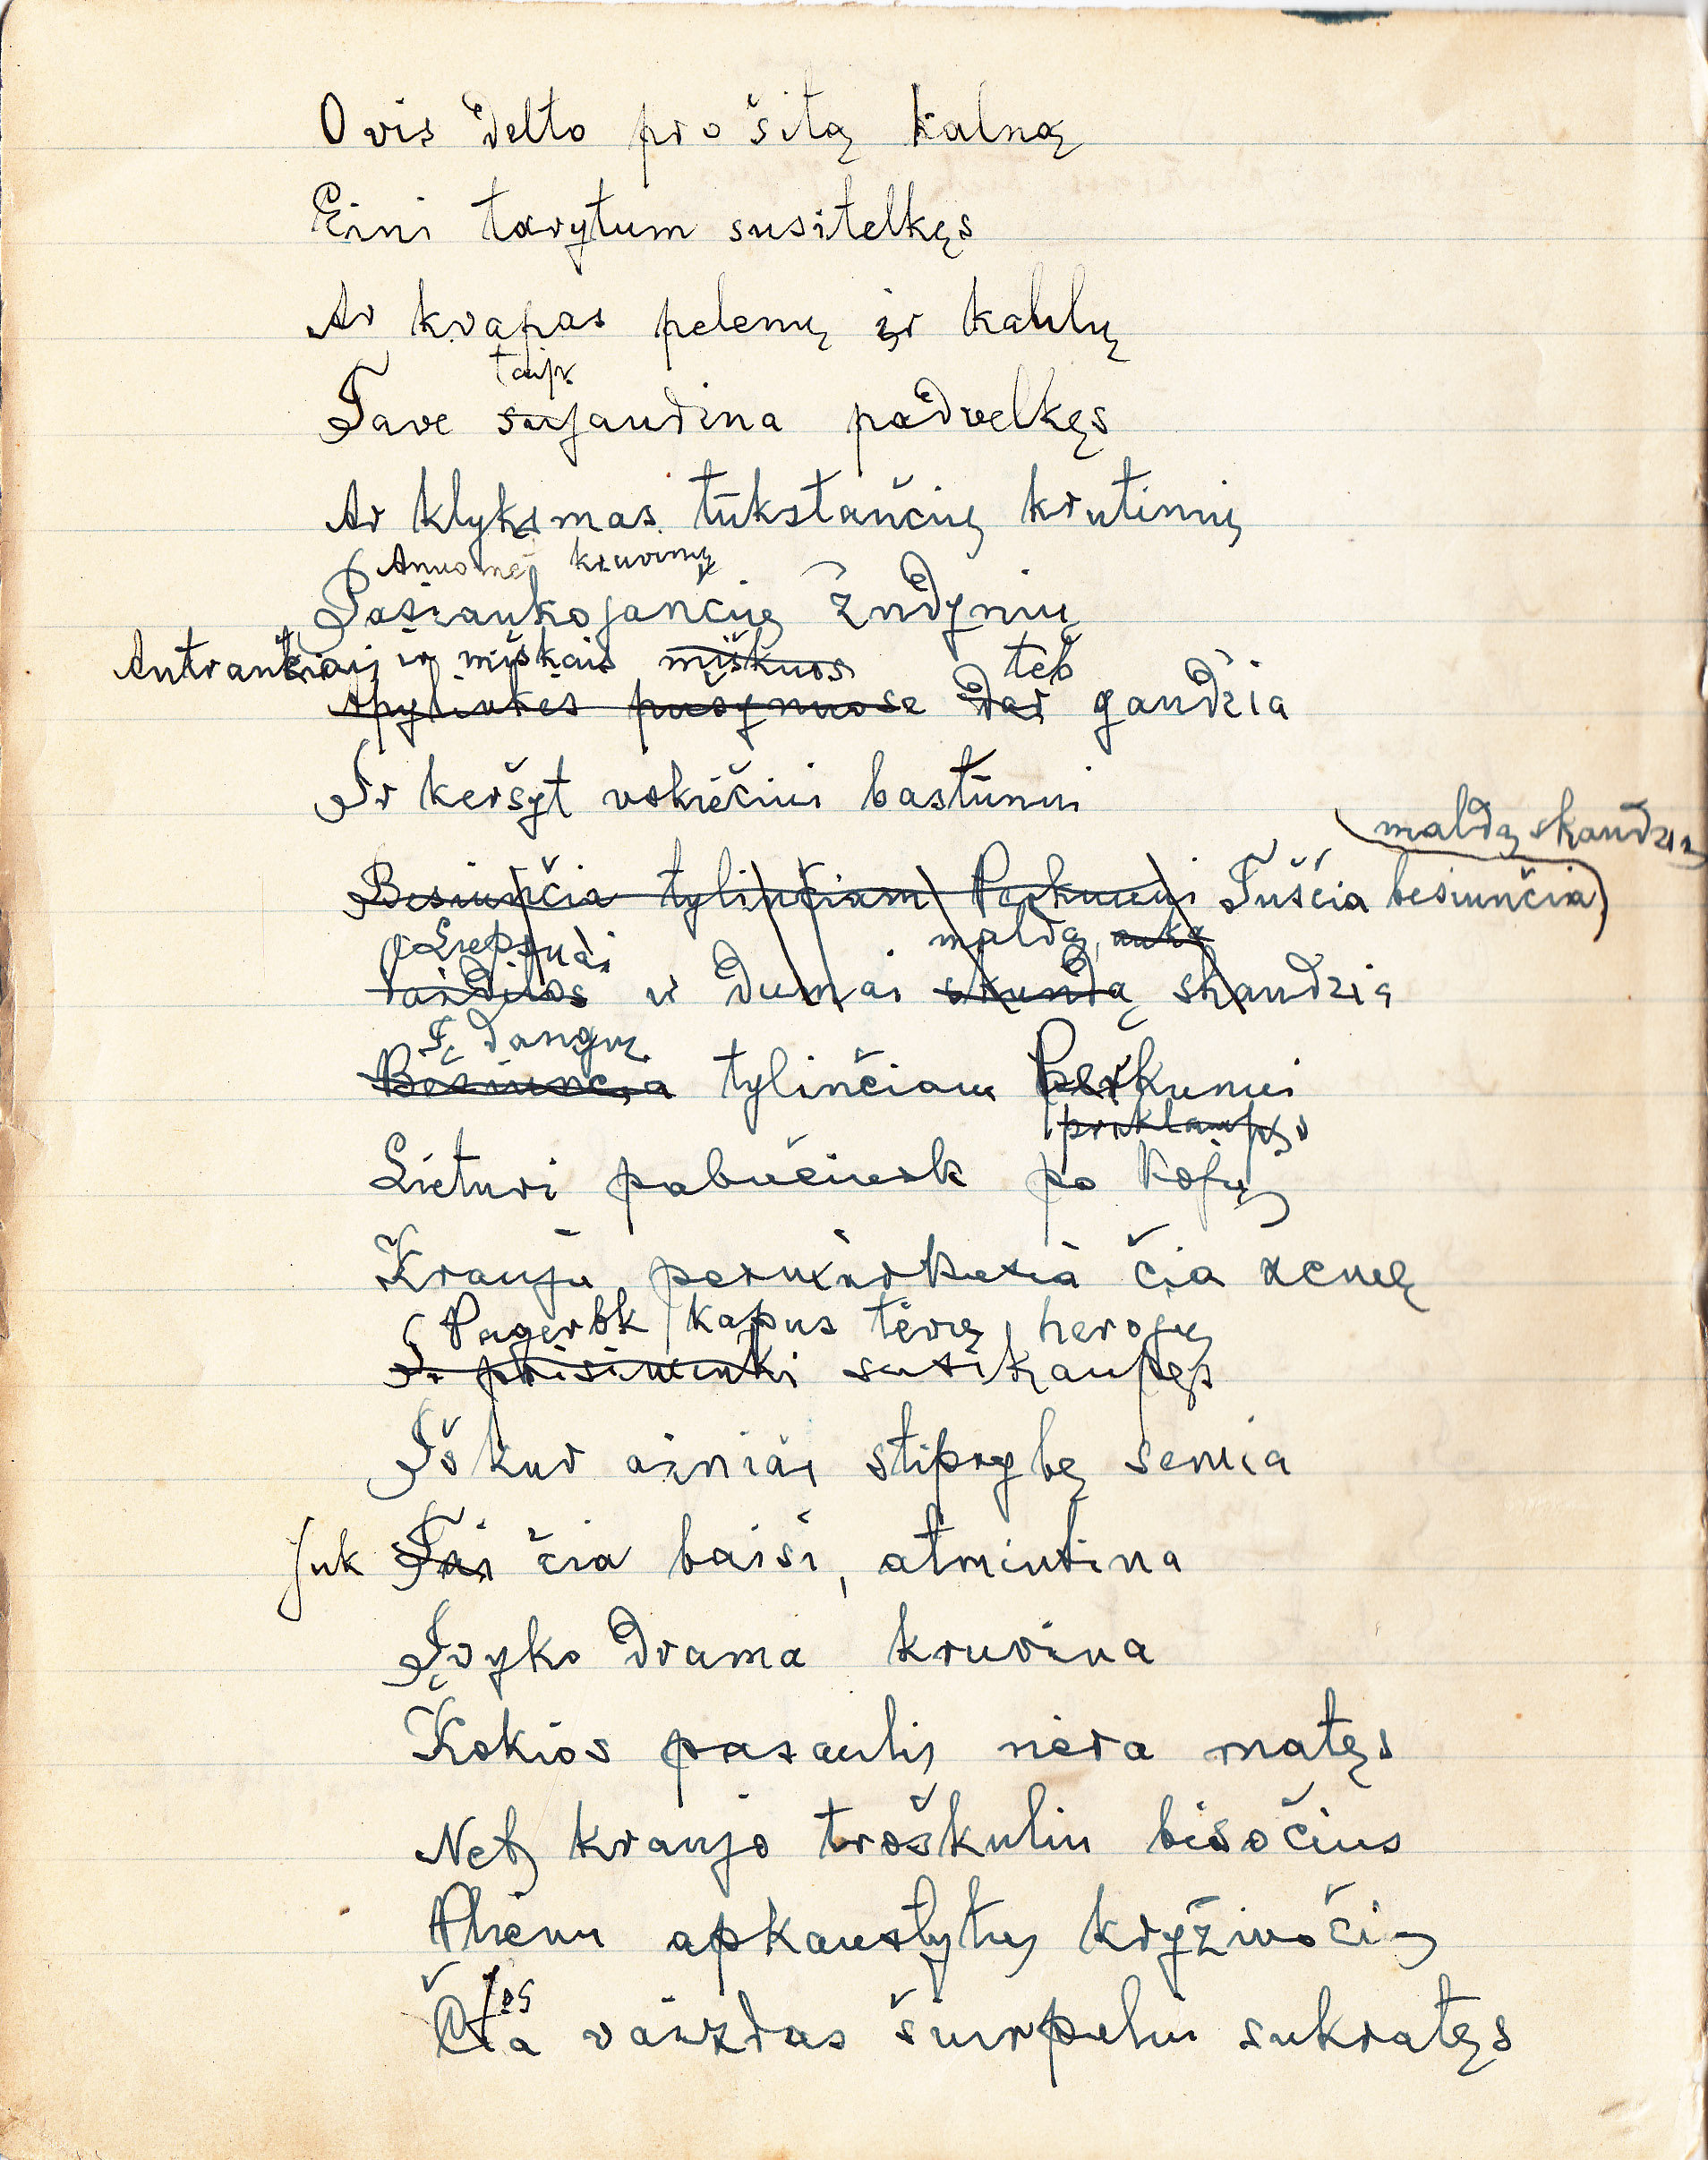 O vis delto pro šitą kalną
Eini tarytum susitelkęs
Ar kvapas pelenų ir kaulų
taip
Tave sujaudina padvelkęs
Ar klyksmas tūkstančių krutinių
Anuomet kruvinų
Pasiaukojančių žudynių
Antrankiais ir miškais miškuos teb
Apylinkės pušynuose dar gaudžia
Ir keršyt vokiečiui bastūnui
maldą skandžia
Besiunčia tylinčiam Perkunui Tuščia besiunčia
Liepsnai maldą, auką
laidilos ir dumai skundą skandzia
Į dangų
Besiunčia tylinčiam Perkunui
priklaupęs
Lietuvi pabučiuok po kojų
Krauju permirkusią čia žemę
Pagerbk kapus tėvų herojų
Ir prisimink susikaupęs
Iš kur ainiai stiprybę semia
Juk Tai čia baisi, atmintina
Įvyko drama kruvina
Kokios pasaulis nėra matęs
Net kraujo troškuliu bisočius
Plienu apkaustytus kryžiuočius
Jos
Čia vaizdas šiurpuliu sukratęs